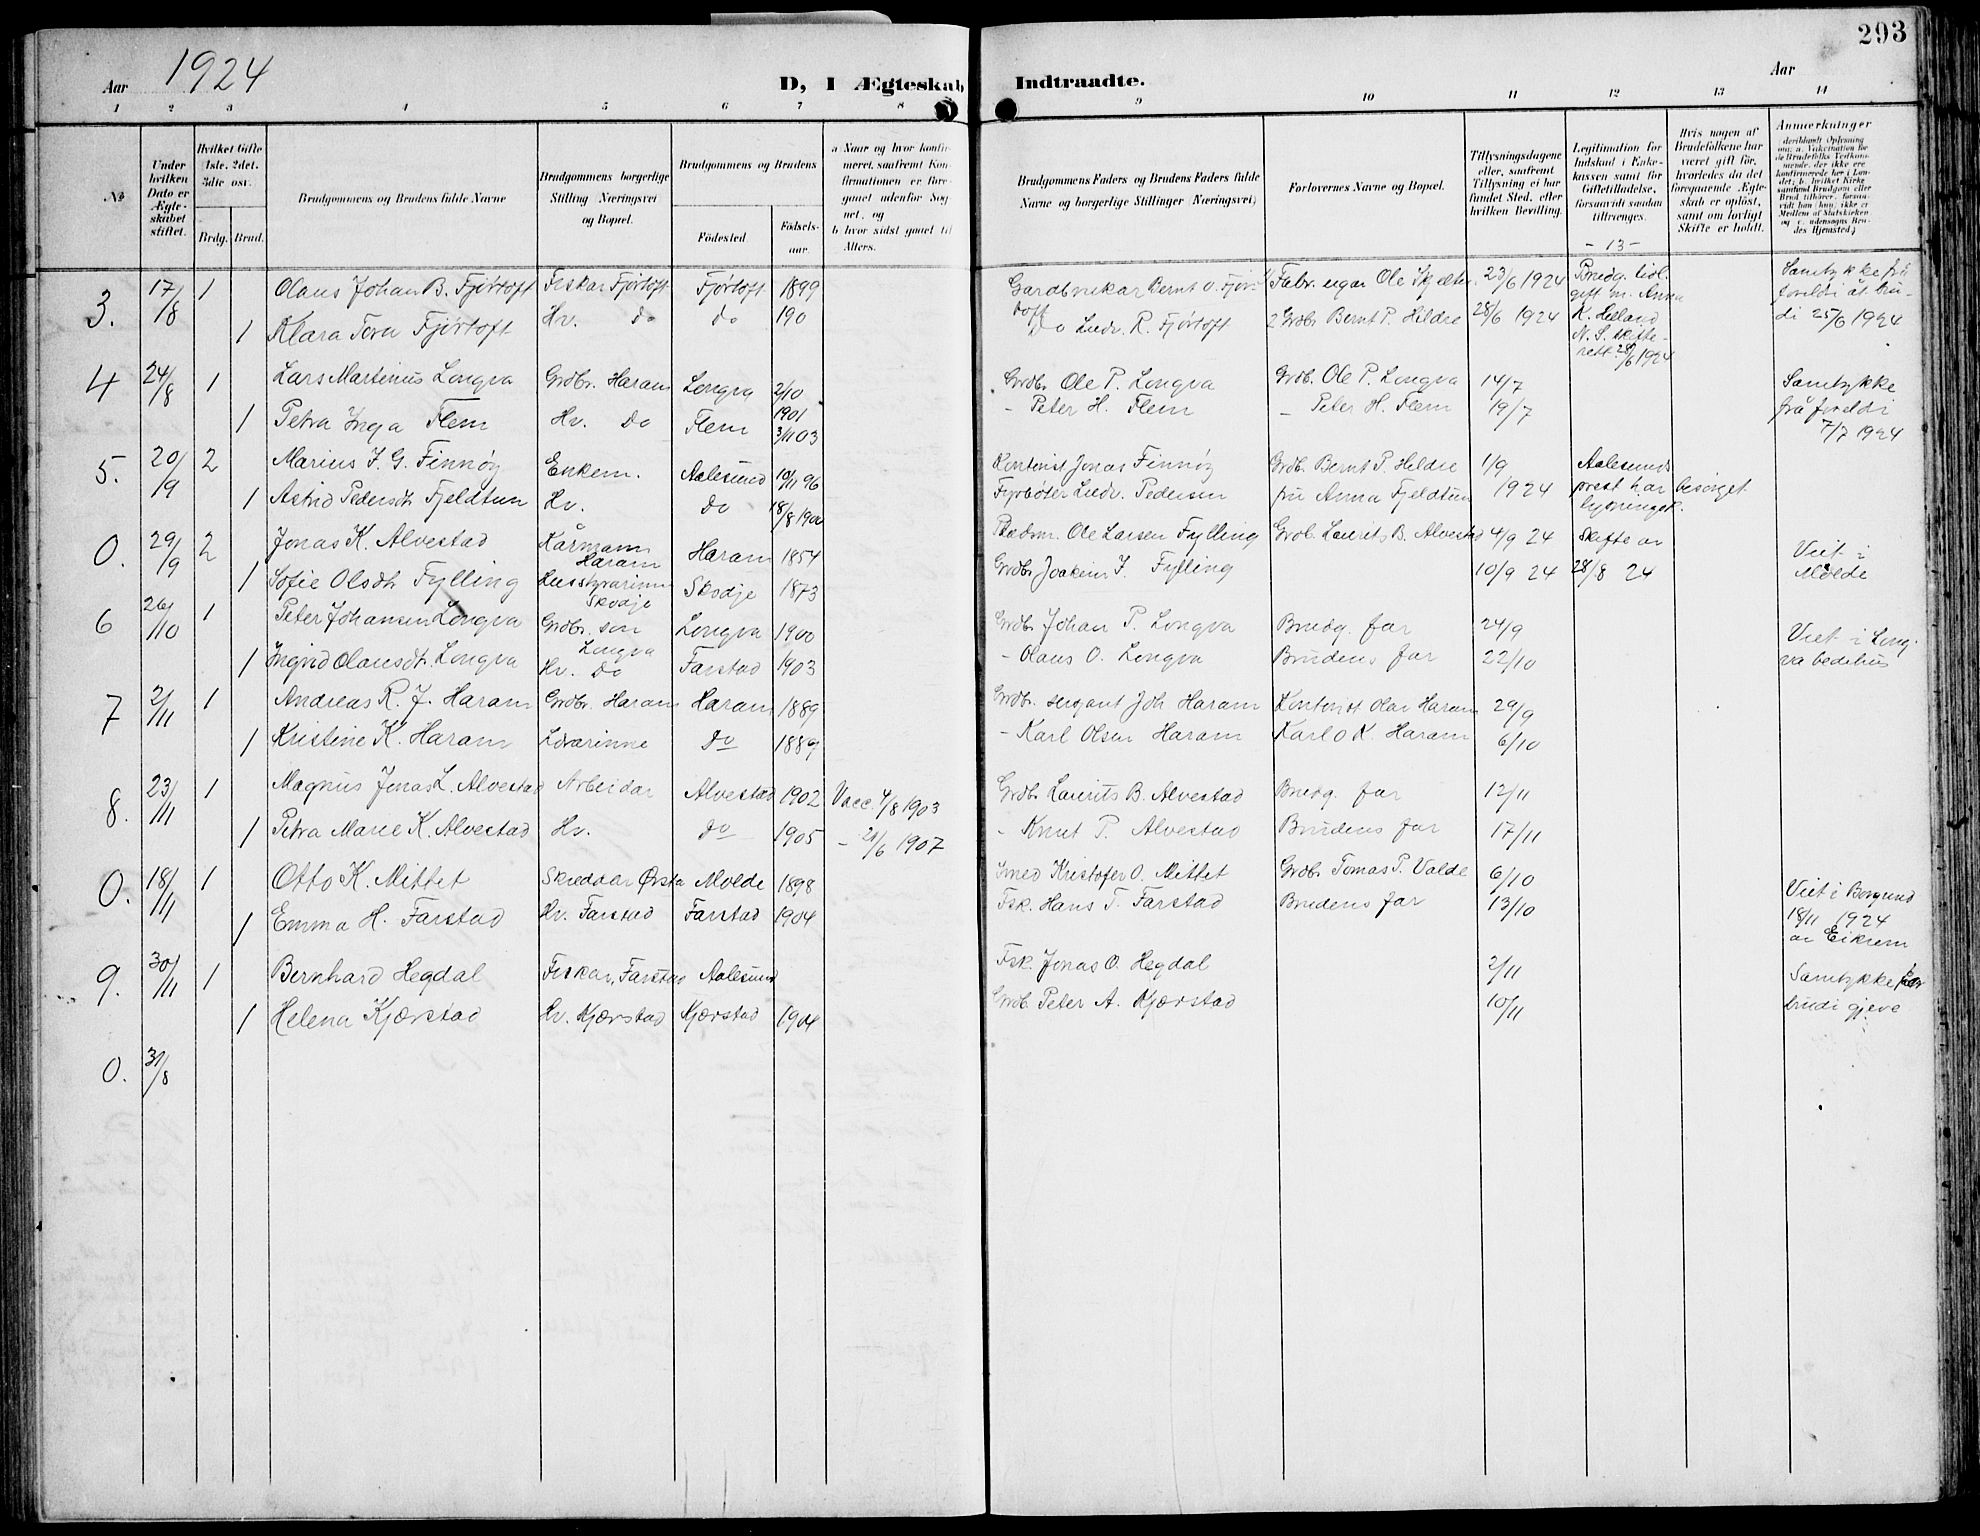 293
Aar 1924
D, I Ægteskab Indtraadte.
Aar
1 2 3 4 5 6 7 8 9 10 11 12 13 14
No
Under hvilken Dato er Ægteskabet stiftet.
Hvilket Gifte 1ste. 2det. 3die osv.
Brdg. Brud.
Brudgommens og Brudens fulde Navne
Brudgommens borgerlige Stilling Næringsvei og Bopæl.
Brudgommens og Brudens
Fødested. Fødselsaar.
a Naar og hvor konfirmeret, saafremt Konfirmationen er foregaaet udenfor Sognet, og
b hvor sidst gaaet til Alters.
Brudgommens Faders og Brudens Faders fulde Navne og borgerlige Stillinger Næringsvei)
Forlovernes Navne og Bopæl.
Tillysningsdagene eller, saafremt Tillysning ei har fundet Sted, efter hvilken Bevilling.
Legitimation for Indskud i Enkekassen samt for Giftetilladelse, forsaavidt saadan tiltrænges.
- 13 -
Hvis nogen af Brudefolkene har været gift før, hvorledes da det foregaaende Ægteskab er opløst, samt om lovligt Skifte er holdt.
Anmærkninger
3. 17/8 1 Olaus Johan B. Fjørtoft Fiskar Fjørtoft Fjørtoft 1899 Gardbrukar Bernt O. Fjørtoft 1/ Fabr. eigar Ole 23/6 1924 Brudg. tidl. gift m. Anna K. Helland N. S. skifterett 28/6 1924 Samtykke frå foreldri åt brudi 25/6 1924
1 Klara Tora Fjørtoft Hv. do do 190 do Ludv. R. Fjørtoft 2 Grdbr. Bernt P. Hildre 28/6 1924
4 24/8 1 Lars Martinus Longva Grdbr. Haram Longva 2/10 1901 Grdbr. Ole P. Longva Grdb. Ole P. Longva 14/7 Samtykke frå foreldri 7/7 1924
1 Petra Inga Flem Hv. do Flem 3/11 03 - Peter H. Flem - Peter H. Flem 19/7
5. 20/9 2 Marius J. G. Finnøy Enkem. Aalesund 10/11 96 Kontorist Jonas Finnøy Grdb. Bernt P. Hildre 1/9 1924 Aalesunds prest har besørget lysninget.
1 Astrid Pedersdt. Fjeldtun Hv. do 18/8 1900 Fyrbøter Ludv. Pedersen fru Anna Fjeldtun
0. 29/9 2 Jonas K. Alvestad Kårmann Haram Haram 1854 Ole Larsen Fylling Grdb. Laurits B. Alvestad 4/9 24 Skifte av 28/8 24 Viet i Molde
1 Sofie Olsdt. Fylling Husstyrarinne Skodje Skodje 1873 Grdbr. Joakim J. Fylling 10/9 24
6 26/10 1 Peter Johansen Longva Grdbr. son Longva Longva 1900 Grdb. Johan P. Longva Brudg. far 24/9 Viet i Longva bedehus
1 Ingrid Olausdt. Longva Hv. do Farstad 1903 - Olaus O. Longva Brudens far 22/10
7 2/11 1 Andreas R. J. Haram Grdbr. Haram Haram 1889 Grdbr. sergant Joh Haram Kontorist Olav Haram 29/9
1 Kristine K. Haram Lærarinne do 1889 - Karl Olsen Haram Karl O K. Haram 6/10
8. 23/11 1 Magnus Jonas L. Alvestad Arbeidar Alvestad 1902 Vacc. 4/8 1903 Grdb. Laurits B. Alvestad Brudg. far 12/11
1 Petra Marie K. Alvestad Hv. do 1905 - 21/6 1907 - Knut P. Alvestad Brudens far 17/11
0. 18/11 1 Otto K. Mittet Skreddar Ørsta Molde 1898 Smed Kristofer O. Mittet Grdb. Tomas P. Valde 6/10 Viet i Borgund 18/11 1924 av Eikrem
1 Emma H. Farstad Hv. Farstad Farstad 1904 Fsk. Hans T. Farstad Brudens far 13/10
9. 30/11 1 Bernhard Hegdal Fiskar, Farstad Aalesund Fsk. Jonas O. Hegdal 2/11 Samtykke for brudi gjeve
1 Helena Kjærstad Hv. Kjærstad Kjærstad 1904 Grdb. Peter A. Kjærstad 10/11
0. 31/8